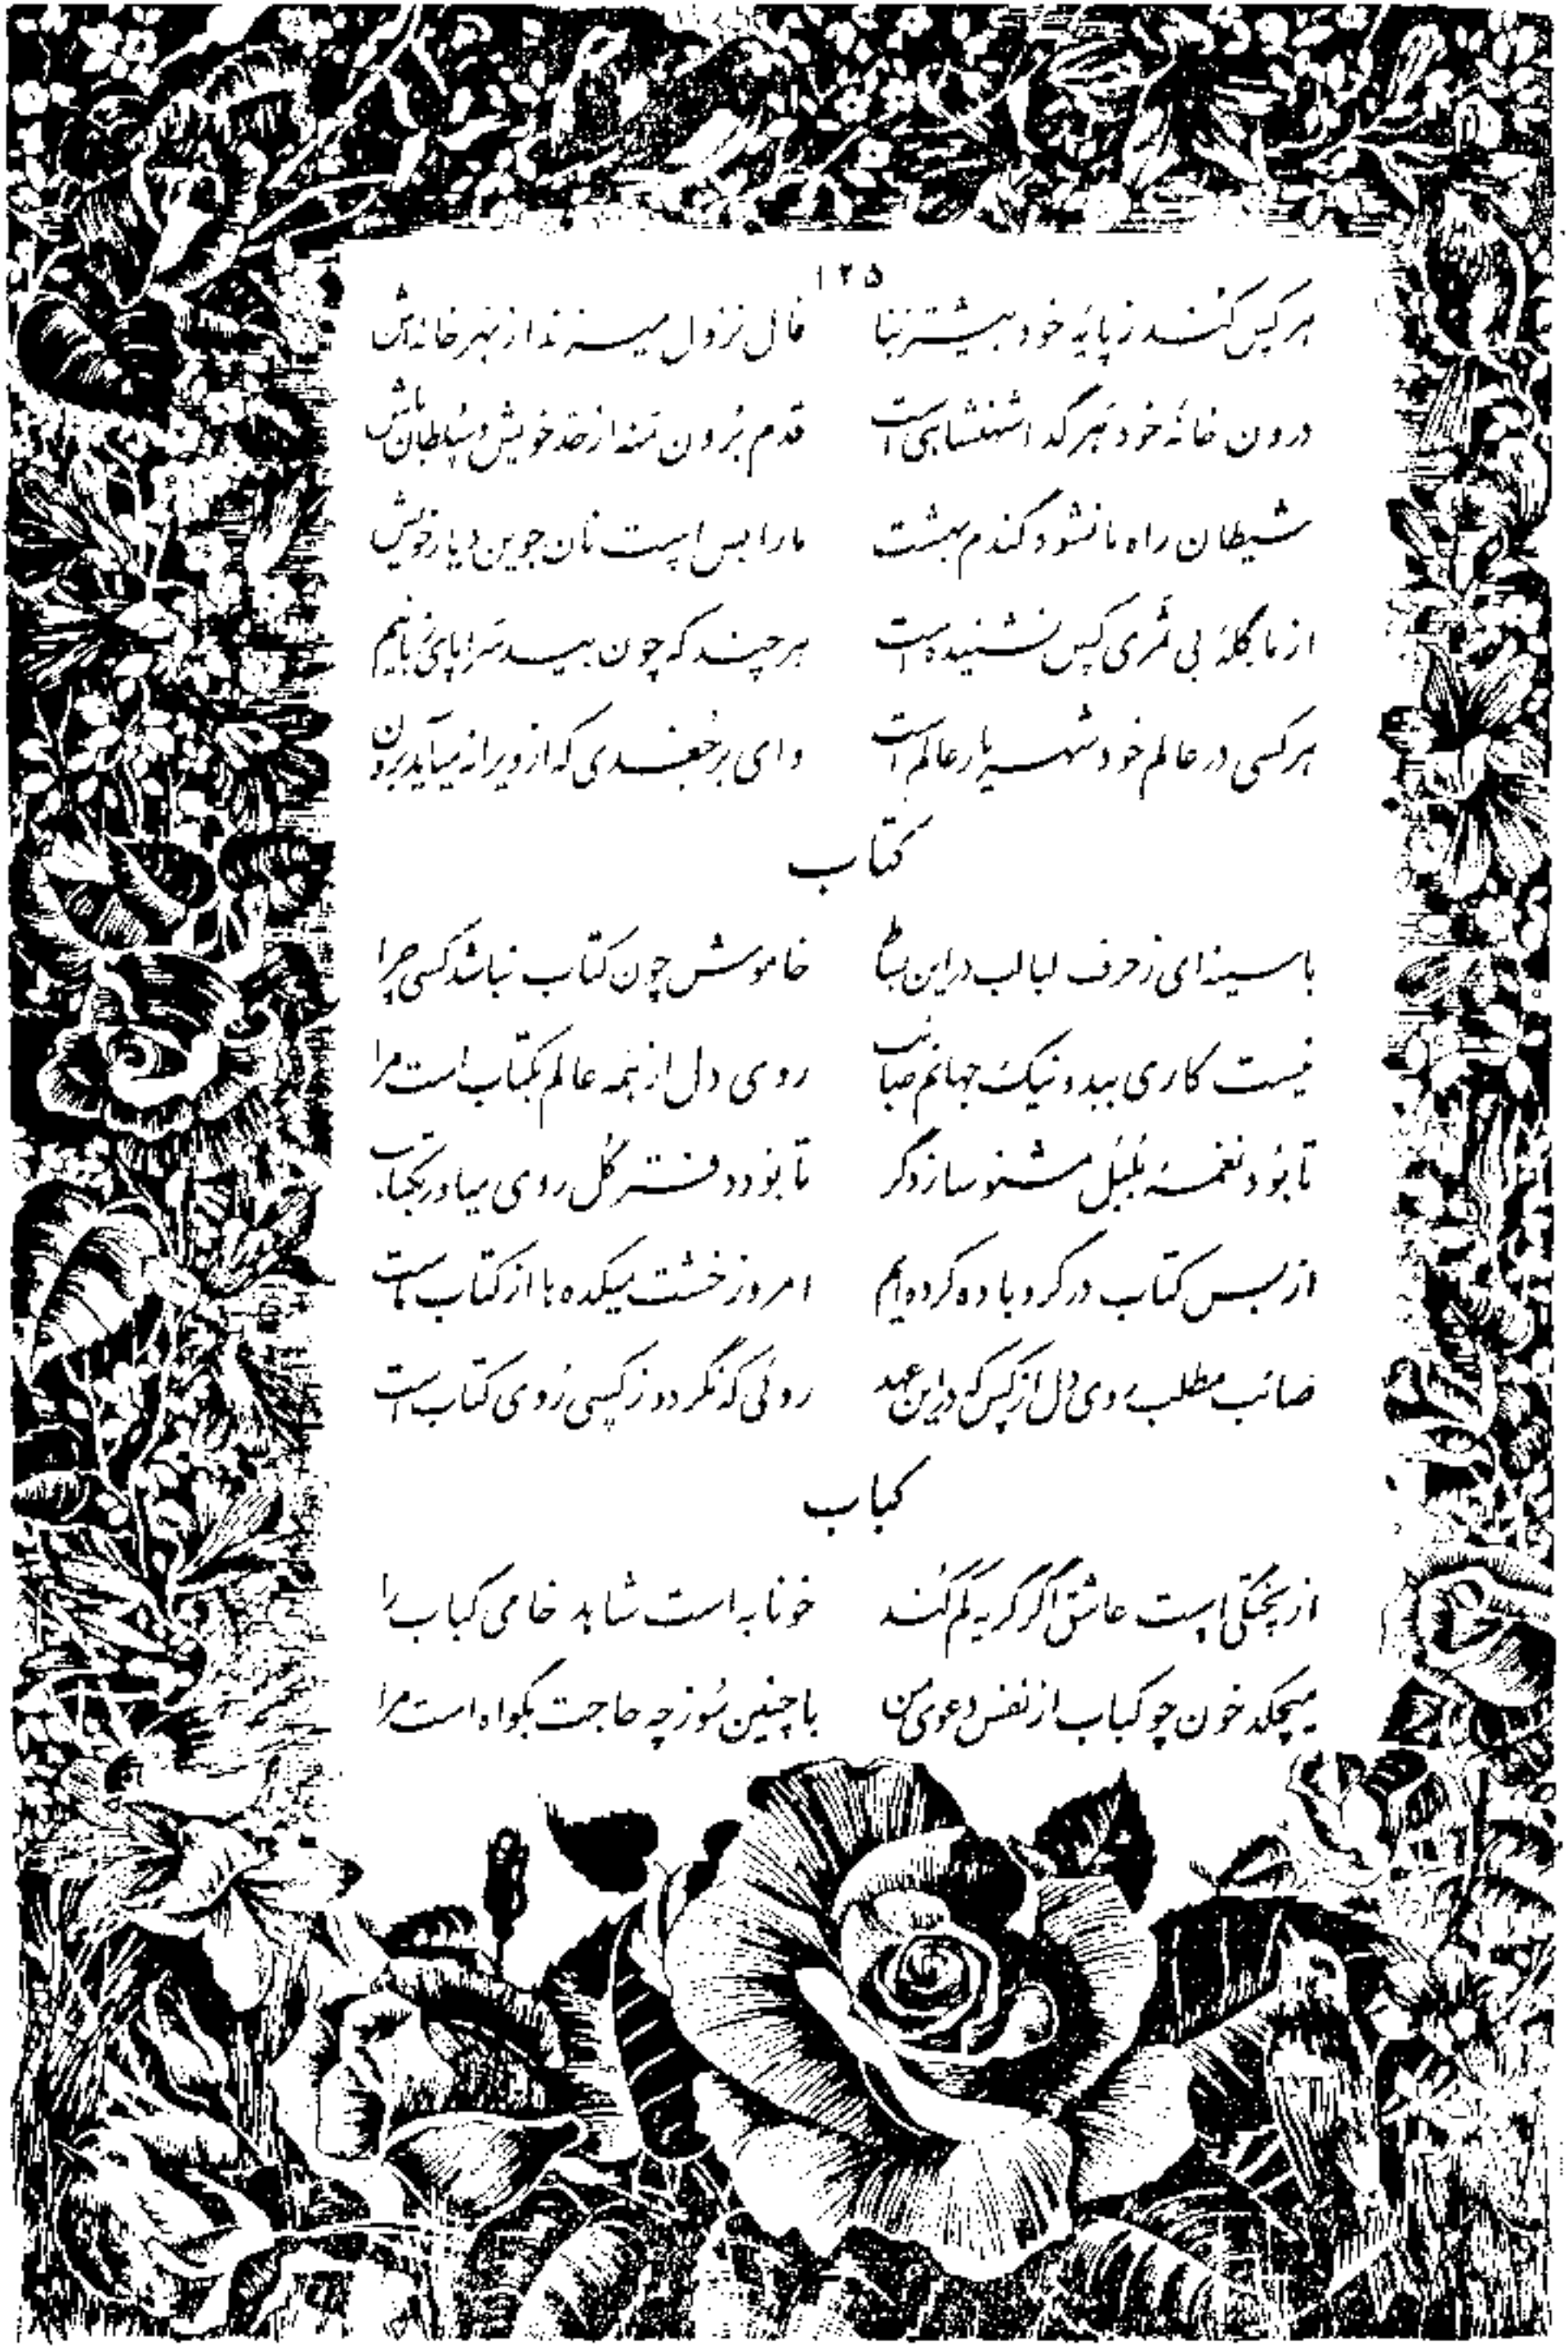 ۱۲۵
هر کس کند ز پایه خود بیشتر بنا فال نزول میزند از بهر خانه‌اش
درون خانهٔ خود هر گدا شهنشاهی است قدم برون منه از حد خویش و سلطان باش
شیطان راه ما نشود گندم بهشت ما را بس است نان جوین دیار خویش
از ما گلهٔ بی ثمری کس نشنیده است هر چند که چون بید سراپای زبانیم
هر کسی در عالم خود شهریار عالم است وای بر جغدی که از ویرانه میآید برون
کتاب
با سینه‌ای ز حرف لبالب در این بساط خاموش چون کتاب نباشد کسی چرا
نیست کاری ببد و نیک جهانم صائب روی دل از همه عالم بکتاب است مرا
تا بود نغمهٔ بلبل مشنو ساز دگر تا بود دفتر گل روی میاور بکتاب
از بس کتاب در گرو باده کرده‌ایم امروز خشت میکده‌ها از کتاب ماست
صائب مطلب روی دل از کس که در این عهد روئی که نگردد ز کسی روی کتاب است
کباب
از پختگی است عاشق اگر گریه کم کند خونابه است شاهد خامی کباب را
میچکد خون چو کباب از نفس دعوی من با چنین سوز چه حاجت بگواه است مرا